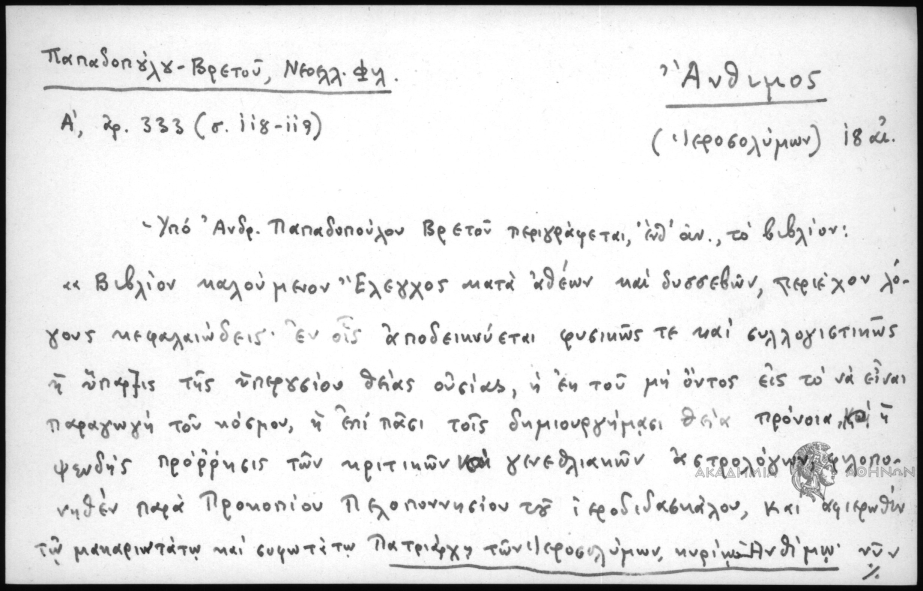 Παπαδοπούλου-Βρετοῦ, Νεοελλ. Φιλ.
Ἄνθιμος
Α', ἀρ. 333 (σ. 118-119)
(Ἱεροσολύμων) 18 αἰ.
- Ὑπό Ἀνδρ. Παπαδοπούλου Βρετοῦ περιγράφεται, ἔνθ' ἀν., τό βιβλίον:
«Βιβλίον καλούμενον Ἔλεγχος κατά ἀθέων καί δυσσεβῶν, περιέχον λό-
γους κεφαλαιώδεις· ἐν οἷς ἀποδεικνύεται φυσικῶς τε καί συλλογιστικῶς
ἡ ὕπαρξις τῆς ὑπερουσίου θείας οὐσίας, ἡ ἐκ τοῦ μή ὄντος εἰς τό νά εἶναι
παραγωγή τοῦ κόσμου, ἡ ἐπί πᾶσι τοῖς δημιουργήμασι θεία πρόνοια, καί ἡ
ψευδής πρόῤῥησις τῶν κριτικῶν καί γενεθλιακῶν ἀστρολόγων, φιλοπο-
νηθέν παρά Προκοπίου Πελοποννησίου τοῦ ἱεροδιδασκάλου, καί ἀφιερωθέν
τῷ μακαριωτάτῳ καί σοφωτάτῳ Πατριάρχῃ τῶν Ἱεροσολύμων, κυρίῳ Ἀνθίμῳ· νῦν
./.
ΑΚΑΔΗΜΙΑ ΑΘΗΝΩΝ